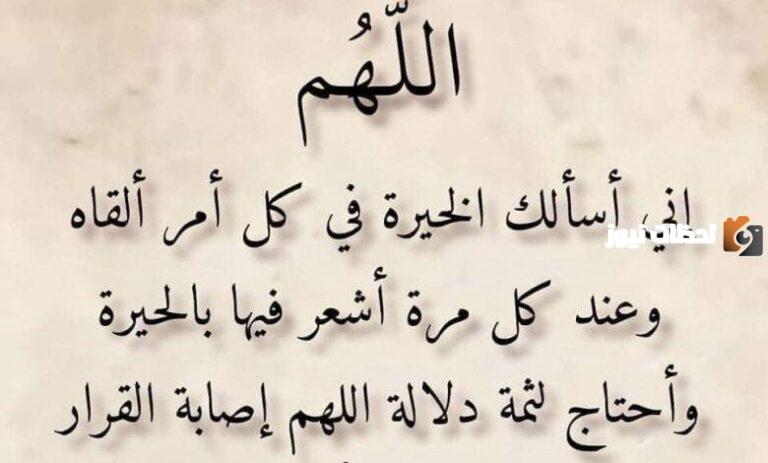 اللّهُم
إني أسألك الخيرة في كل أمر ألقاه
لحظات نيوز
وعند كل مرة أشعر فيها بالحيرة
وأحتاج لثمة دلالة اللهم إصابة القرار